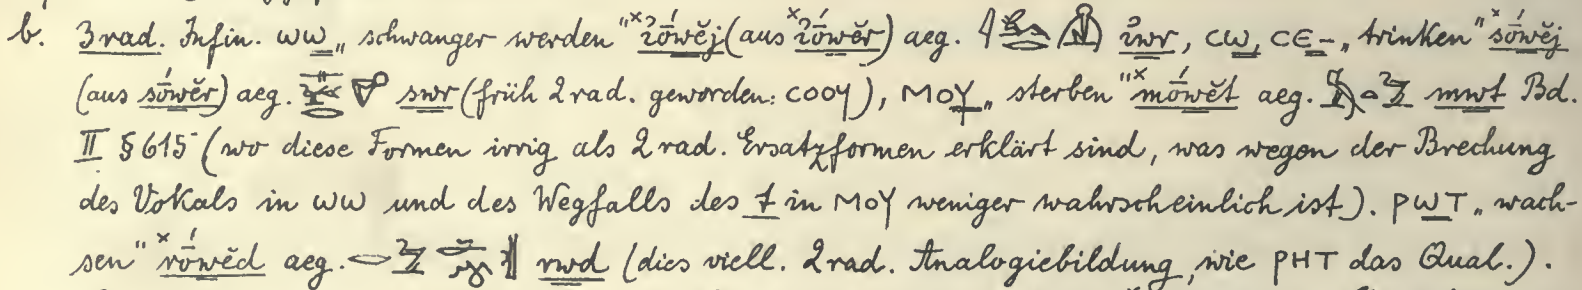 b. 3rad. Infin. ⲱⲱ „schwanger werden“ ×ı͗ṓwĕj (aus ×ı͗ṓwĕr) aeg. ı͗wr, ⲥⲱ, ⲥⲉ- „trinken“ ×sṓwĕj
(aus sṓwĕr) aeg. swr (früh 2rad. geworden: ⲥⲟⲟⲩ), ⲙⲟⲩ „sterben“ ×mṓwĕt aeg. mwt Bd.
II § 615 (wo diese Formen irrig als 2rad. Ersatzformen erklärt sind, was wegen der Brechung
des Vokals in ⲱⲱ und des Wegfalls des t in ⲙⲟⲩ weniger wahrscheinlich ist). ⲣⲱⲧ „wach-
sen“ ×rṓwĕd aeg. rwd (dies viell. 2rad. Analogiebildung, wie ⲣⲏⲧ das Qual.).